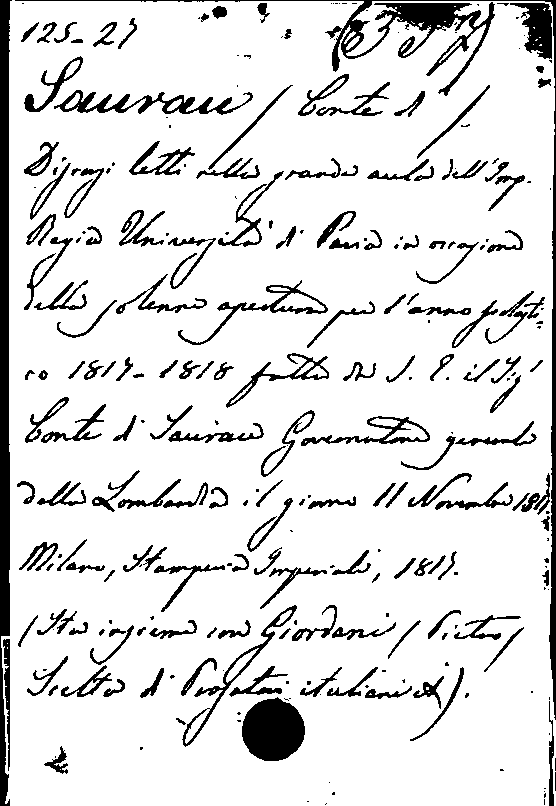 125-27
Saurau / Conte di /
Discorsi letti nella grande aula dell'Imp.
Regia Università di Pavia in occasione
della solenne apertura per l'anno scolasti-
co 1817-1818 fatta da S. E. il Sig.
Conte di Saurau Governatore generale
della Lombardia il giorno 11 Novembre 1817
Milano, Stamperia Imperiale, 1817.
(Sta insieme con Giordani / Pietro /
Scelta di Prosatori italiani